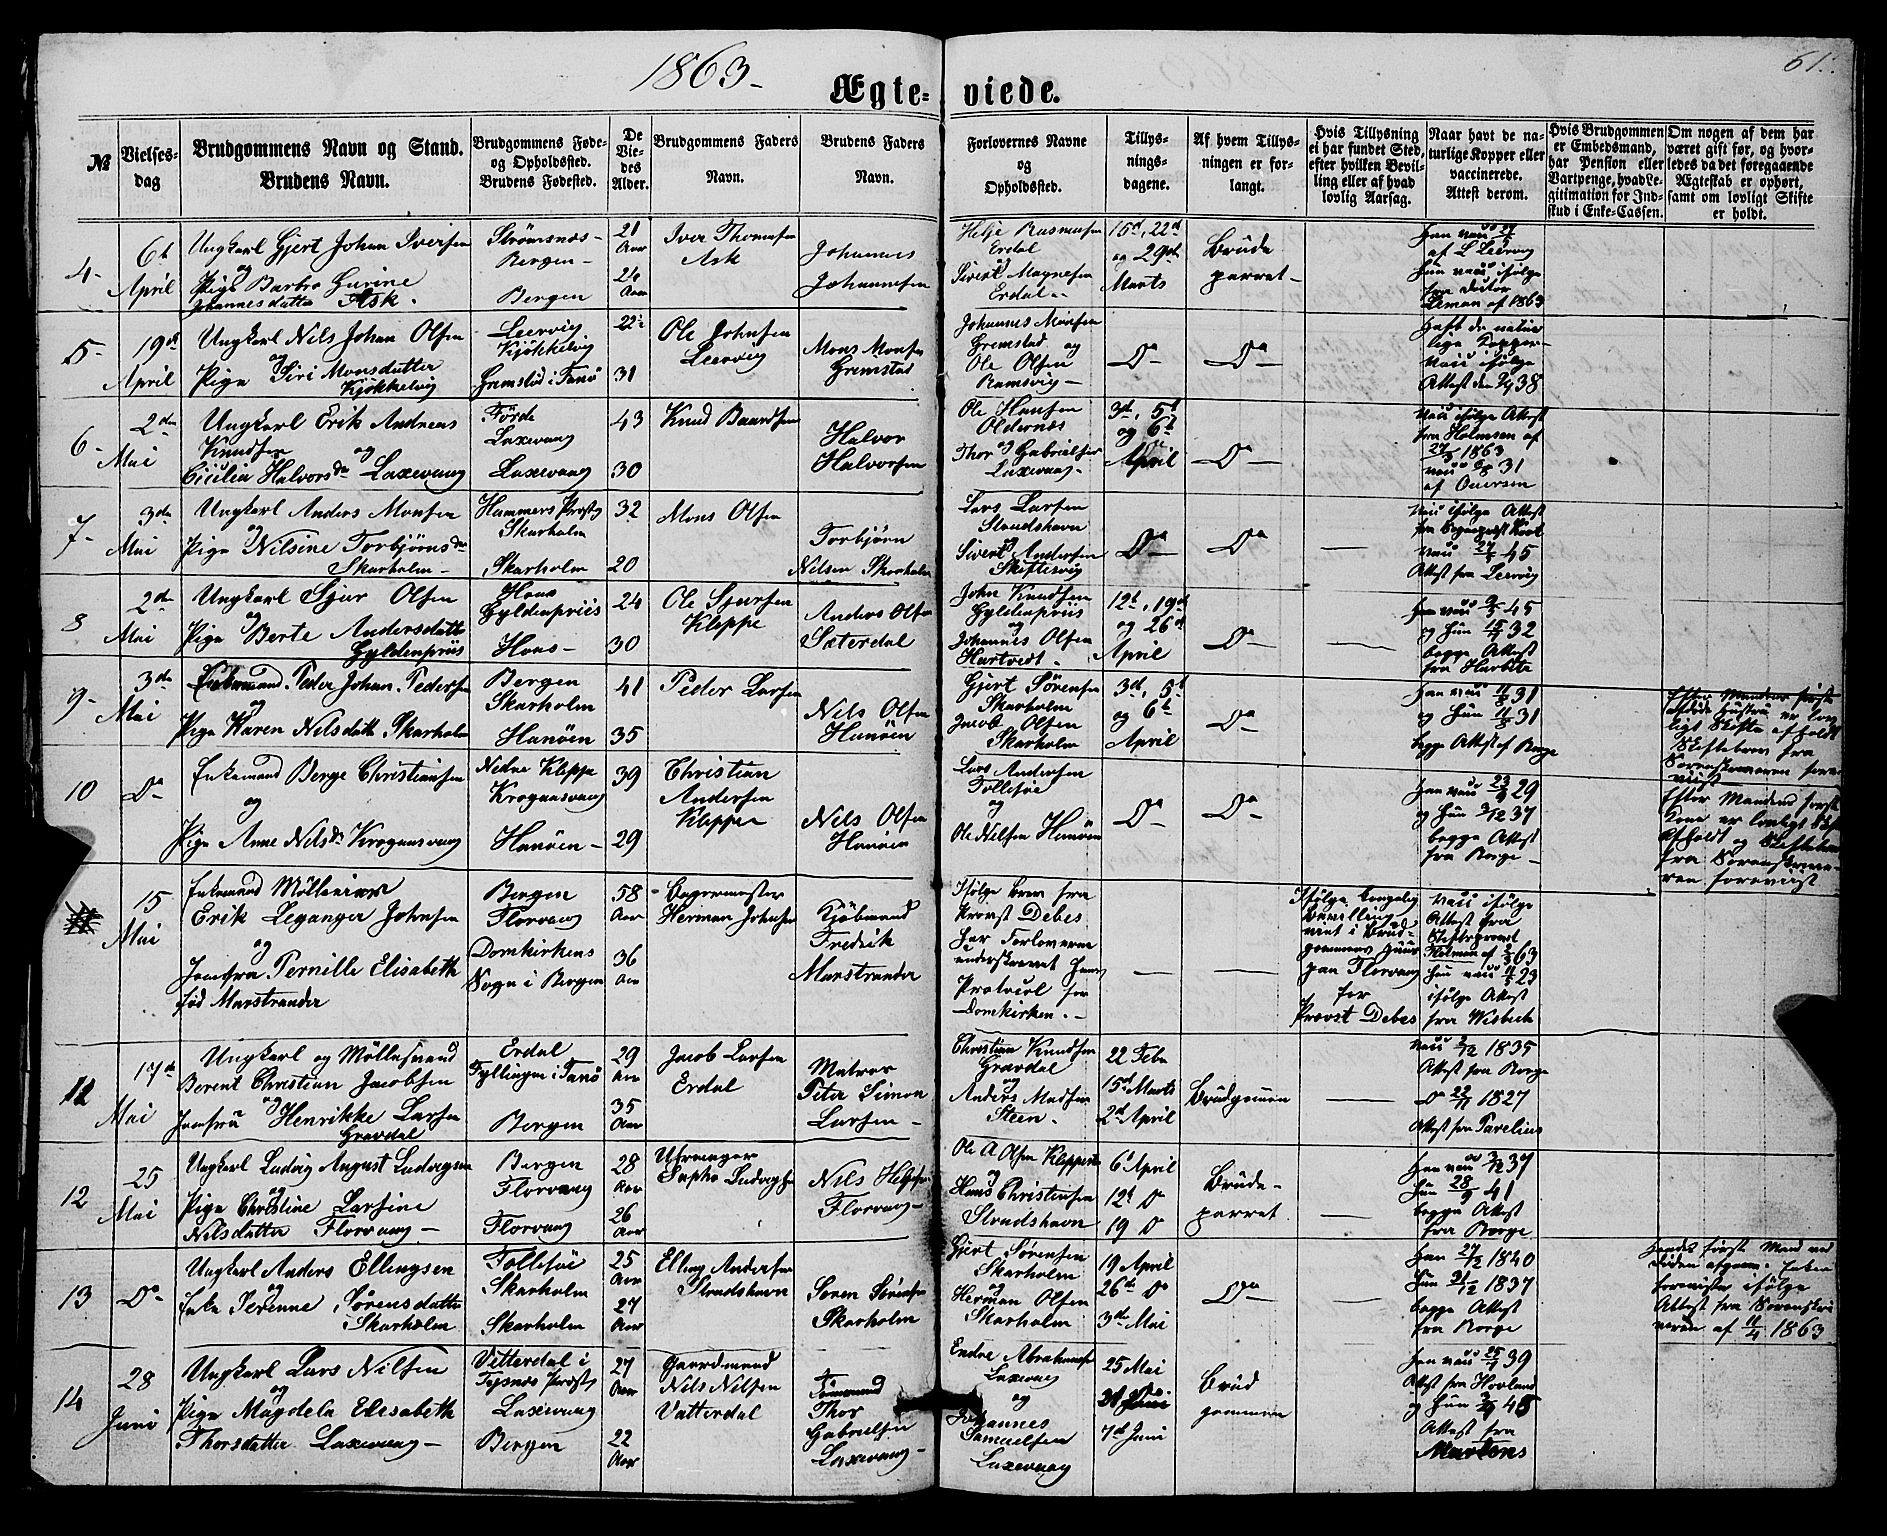 1863-
61.
Ægte= viede.
№
Vielses-
dag
Brudgommens Navn og Stand.
Brudens Navn.
Brudgommens Føde-
og Opholdssted.
Brudens Fødested.
De
Vie-
des
Alder.
Brudgommens Faders
Navn.
Brudens Faders
Navn.
Forlovernes Navne
og
Opholdssted.
Tillys-
nings-
dagene.
Af hvem Tillys-
ningen er for-
langt.
Hvis Tillysning
ei har fundet Sted,
efter hvilken Bevil-
ling eller af hvad
lovlig Aarsag.
Naar havt de na-
turlige Kopper eller
vaccinerede.
Attest derom.
Hvis Brudgommen
er Embedsmand,
har Pension eller
Vartpenge, hvad Le-
gitimation for Ind-
skud i Enke-Cassen.
Om nogen af dem har
været gift før, og hvor-
ledes da det foregaaende
Ægteskab er ophørt,
samt om lovligt Skifte
er holdt.
4-
6t
April
Ungkarl Gjert Johan Iversen
og
Pige Barbro Gurine
Johannesdatter Ask.
Strømsnæs-
Bergen-
Bergen
21
Aar
20
Aar
Iver Thomsen
Ask
Johannes
Johannesen
Helje Rasmusen
Erdal
Sivert Magnesen
Erdal
15d, 22d
og 29de
Marts
Brude
parret-
af L Leervig
Hun vac ifølge
fra Doctor
Leman af 1863
5-
19de
April
Ungkarl Nils Johan Olsen
og
Pige Siri Monsdatter
Kjøkkelvig
Leervig
Kjøkkelvig
Gremstad i Fanø
22
31
Ole Johnsen
Leervig
Mons Monsen
Gremstad
Johannes Monsen
Gremstad og
Ole Olsen
Ramsvig-
Do-
Do-
Haft de natur
lige Kopper-
vacc ifølge
Attest den 9/9 38
6-
2den
Mai
Ungkarl Erik Andreas
Knudsen
og
Cicilia Halvorsdr Laxevaag
Førde
Laxevaag
Laxevaag
43
30
Knud Baardsen
Halvor
Halvorsen
Ole Hansen
Oldernæs
og
Thor Gabrielsen
Laxevaag-
3d, 5t
og 6t
April
Do-
vacc ifølge Attest
fra Holmsen af
1863
31
7-
3de
Mai
Ungkarl Anders Monsen
og
Pige Nilsine Torbjørnsdr
Skarholm-
Hammers Præstg
Skarholm
Skarholm
32
20
Mons Olsen
Torbjørn
Nilsen Skarholm
Lars Larsen
Strudshavn
Sivert Andersen
Skiftesvig
Do-
Do-
vacc ifølge Attest
vacc 27/5 45
Attest fra Leervig
8
2de
Mai
Ungkarl Sjur Olsen
og
Pige Berte Andersdatter
Gyldenpriis
Haus
Gyldenpriis
Haus-
24
30
Ole Sjursen
Kleppe
Anders Olsen
Sæterdal
John Knudsen
Gyldenpriis
og
Johannes Olsen
Hartvedt-
12t, 19de
og 26de
April
Do-
Han vacc 45
og Hun 32
begge Attest
9-
3de
Mai
Enkemand Peder Johan Pedersen
og
Pige Karen Nilsdatter Skarholm
Bergen
Skarholm
Hanøen
41
35
Peder Larsen
Nils Olsen
Hanøen
Gjert Sørensen
Skarholm
Jacob Olsen
Skarholm
3d, 5t
og 6t
April
Do-
Han vacc 11/8 31
og Hun 11/8 31
begge Attest af Borge
Efter Mandens første
afdøde Hustru er lov
ligt Skifte afholdt
Skiftebrev fra
Sorenskriveren fore
viist
10
Do-
Enkemand Berge Christiansen
og
Pige Anne Nilsdr Krogaasvaag
Nedre Kleppe
Krogaasvaag
Hanøen-
39
29
Christian
Andersen
Kleppe
Nils Olsen
Hanøen
Lars Andersen
Follesøe
og
Ole Nilsen Hanøen
Do-
Do-
Han vacc 23/9 29
og Hun 3/12 37
begge Attest
fra Borge-
Efter Mandens første
Kone er lovligt Skif
afholdt og Skiftebrev
fra Sorenskrive
ren foreviist
15
Mai
Enkemand Mølleeier
Erik Leganger Johnsen
og
Jomfru Pernille Elisabeth
fød Marstrander
Bergen
Florvaag
Domkirkens
Sogn i Bergen
58
Aar
36
Aar
Bagermester
Herman Johnsen
Kjøbmand
Fredrik
Marstrander
Ifølge brev fra
Provst Debes
har Forloverne
underskrevet hans
Protocol for
Domkirken.-
Ifølge kongelig
Bevilling
viet i Brud-
gommens Huus
paa Florvaag
før
Provst Debes
vacc ifølge
Attest fra
Stiftsprovst
63
Hun vacc 23
ifølge Attest
fra Wisbech
11
17de
Mai
Ungkarl og Møllesvend
Berent Christian Jacobsen
og
Jomfru Henrikke Larsen
Gravdal
Erdal
Fyllingen i Fanø
Bergen
29
Aar
35
Aar
Jacob Larsen
Erdal
Matros
Peter Simon
Larsen-
Christian Knudsen
Gravdal
og
Anders Madsen
Steen.
22 Febr
15d Marts
2d April
Brudgomen
vacc 2/12 1835
Attest fra Borge
Do 22/11 1827
Attest fra Parelius
12
25
Mai
Ungkarl Ludvig August Ludvigsen
og
Pige Christine Larsine
Nilsdatter Florvaag-
Bergen
Florvaag
Florvaag
28
Aar
26
Aar
Uhrmager
Sophus Ludvigsen
Nils Helgesen
Florvaag-
Ole A Olsen Kleppestø
og
Hans Christensen
Strudshavn
6t April
12t Do
19 Do
Brude-
parret
Han vacc 3/12 37
Hun 28/9 41
begge Attest
fra Borge
13
Do-
Ungkarl Anders Ellingsen
og
Enke Serenne Sørensdatter
Skarholm
Follesøe
Skarholm
Skarholm
25
Aar
27
Aar
Elling Andersen
Strudshavn
Søren Sørensen
Skarholm
Gjert Sørensen
Skarholm
Herman Olsen
Skarholm
19 April
26de Do
3de Mai
Do-
Han 27/2 1840
Hun 21/12 1837
begge Attest
fra Borge
Hendes første Mand ved
Enken
ifølge
Attest fra Sorenskri
veren af 11/4 1863
14
28
Juni
Ungkarl Lars Nilsen
og
Pige Magdela Elisabeth
Thorsdatter Laxevaag-
Vetterdal i
Tysnæs Præstg
Laxevaag
Bergen
27
Aar
22
Aar
Gaardmand
Nils Nilsen
Vatterdal
Tømmermand
Thor
Gabrielsen
Laxevaag-
Endre Abrahamsen
Laxevaag
og
Johannes
Samuelsen
Laxevaag
25 Mai
31 Do
7d Juni
Brud
gommen
Han vacc 25/7 39
Attest fra Hovland
og Hun 45
Attest fra
Martens